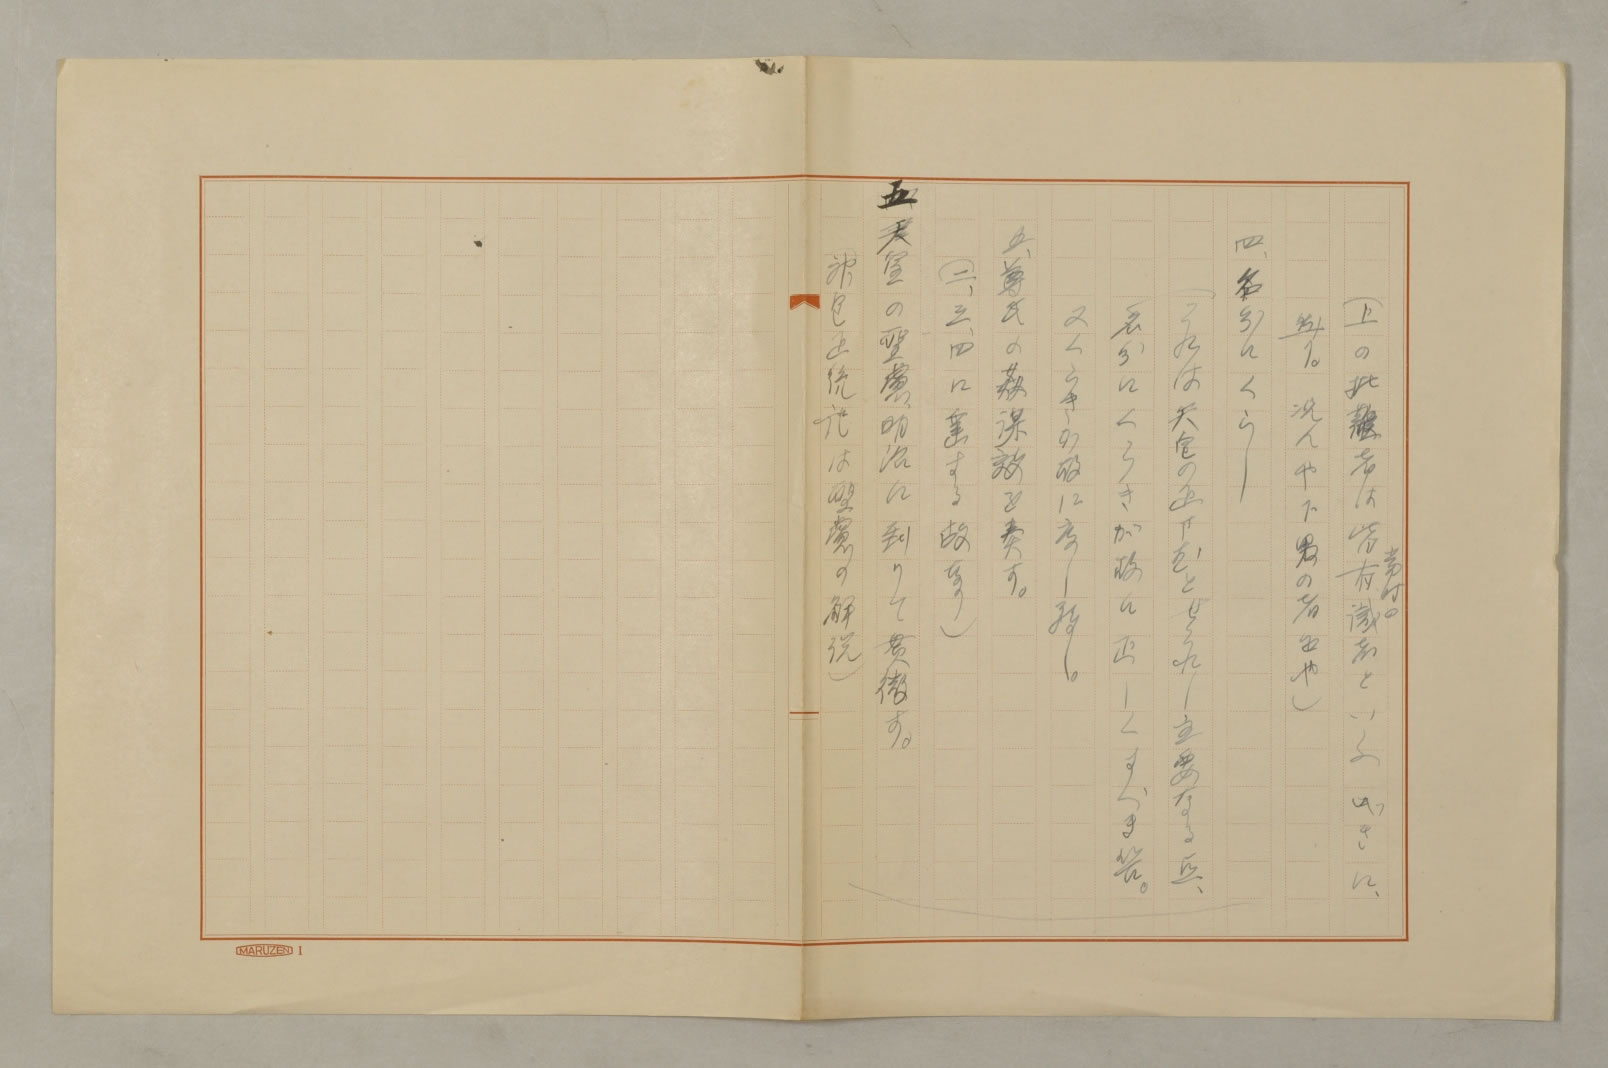 (上の批難者は皆当時の有識者といふべきに、
然り。況んや下男の者をや)
四、名分にくらし
(これは天皇の正せむとせられし主要なる点、
名分にくらきが故に正しくすべき筈。
又くらきが故に度し難し。
五、尊氏の欺謀誠を奏す。
(二、三、四に乗ずる故なり)
五 天皇の聖慮、明治に到りて貫徹す。
(神皇正統記は聖慮の解説)
MARUZEN 1